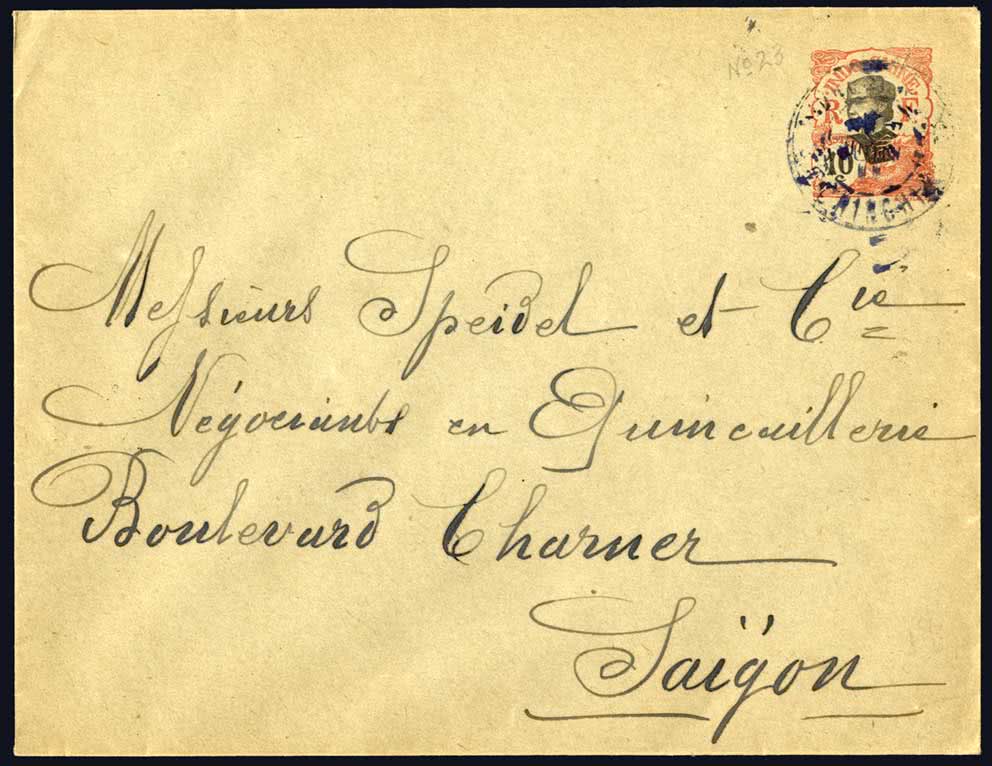 No 23
INDOCHINE
R F
10
Messieurs Speidel et Cie
Négociants en Quincaillerie
Boulevard Charner
Saïgon